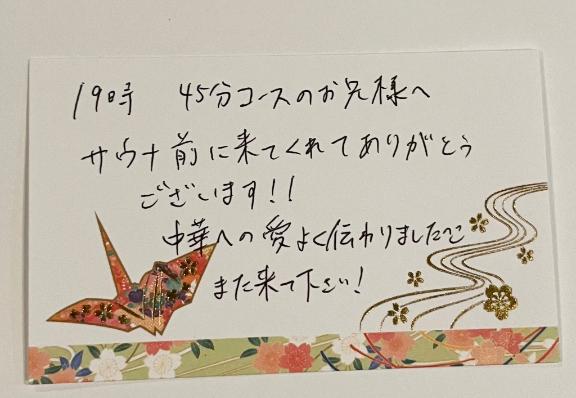 19時 45分コースのお兄様へ
サウナ前に来てくれてありがとう
ございます!!
中華への愛よく伝わりました
また来て下さい!